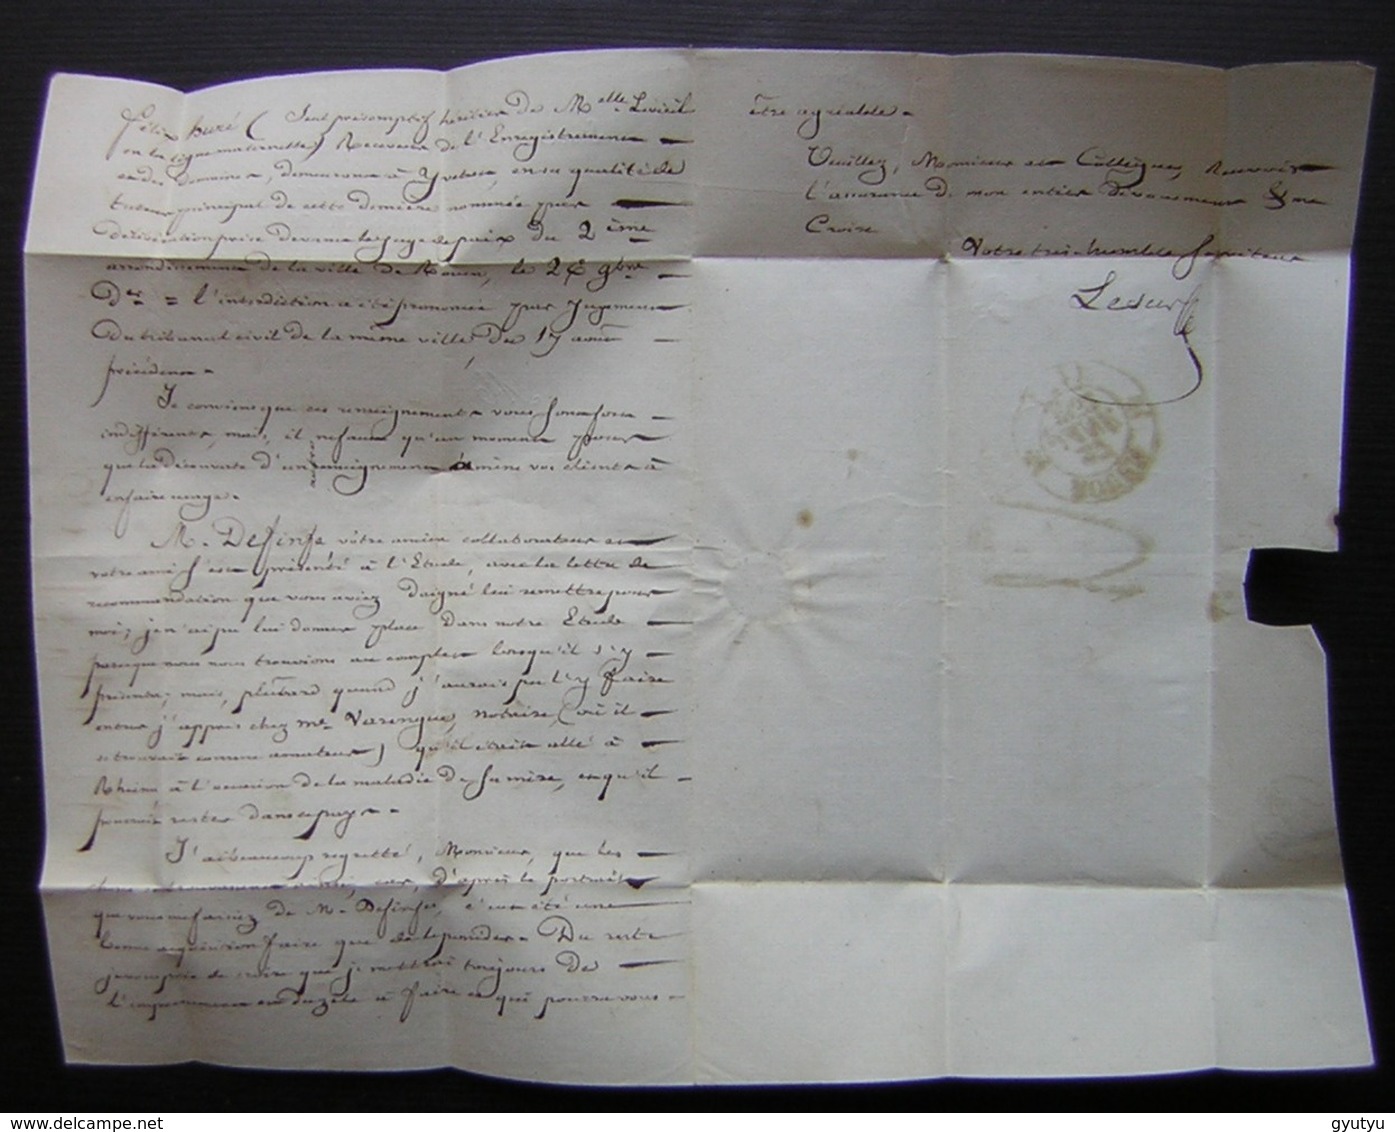 félix huré (seul présomptif héritier de Melle Levieil
en la ligne maternelle) Receveur de l'Enregistrement
et des Domaines, demeurant à Yvetot, en sa qualité de
tuteur principal de cette dernière nommée par
délibération prise devant le juge de paix du 2ème
arrondissement de la ville de Rouen, le 26 9bre
Der = l'interdiction a été prononcée par Jugement
du tribunal civil de la même ville, du 17 août
précédent.
Je conviens que ces renseignements vous sont fort
indifférents, mais, il ne faut qu'un moment pour
que la découverte d'un renseignement amène vos clients à
en faire usage.
M. Definfe votre ancien collaborateur et
votre ami s'est présenté à l'Etude, avec la lettre de
recommandation que vous aviez daigné lui remettre pour
moi; je n'ai pu lui donner place dans notre Etude
parceque nous nous trouvions au complet lorsqu'il s'y
présenta; mais, plutard quand j'aurais pu l'y faire
entrer j'appris chez Me Varengue, notaire, (où il
se trouvait comme amateur) qu'il était allé à
Rheims à l'occasion de la maladie de sa mère, et qu'il
pourrait rester dans ce pays.
J'ai beaucoup regretté, Monsieur, que les
car, d'après le portrait
que vous me faisiez de M. Definfe, c'eut été une
bonne acquisition faire que de le posséder. Du reste
je vous prie de croire que je mettrai toujours de
l'empressement et du zèle à faire ce qui pourra vous
être agréable.
Veuillez, Monsieur et Collègue, Recevoir
l'assurance de mon entier dévouement & me
Croire
Votre très humble Serviteur
Lesur
ROUEN
gyutyu